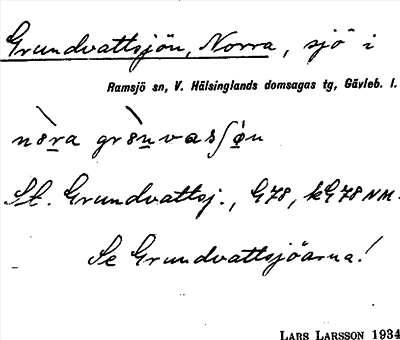 Grundvattsjön, Norra, sjö i
Ramsjö sn, V. Hälsinglands domsagas tg, Gävleb. l.
nòra grùnvasʃø̀n
St. Grundvattsj., G78, kG78 NM.
Se Grundvattsjöarna!
LARS LARSSON 1934